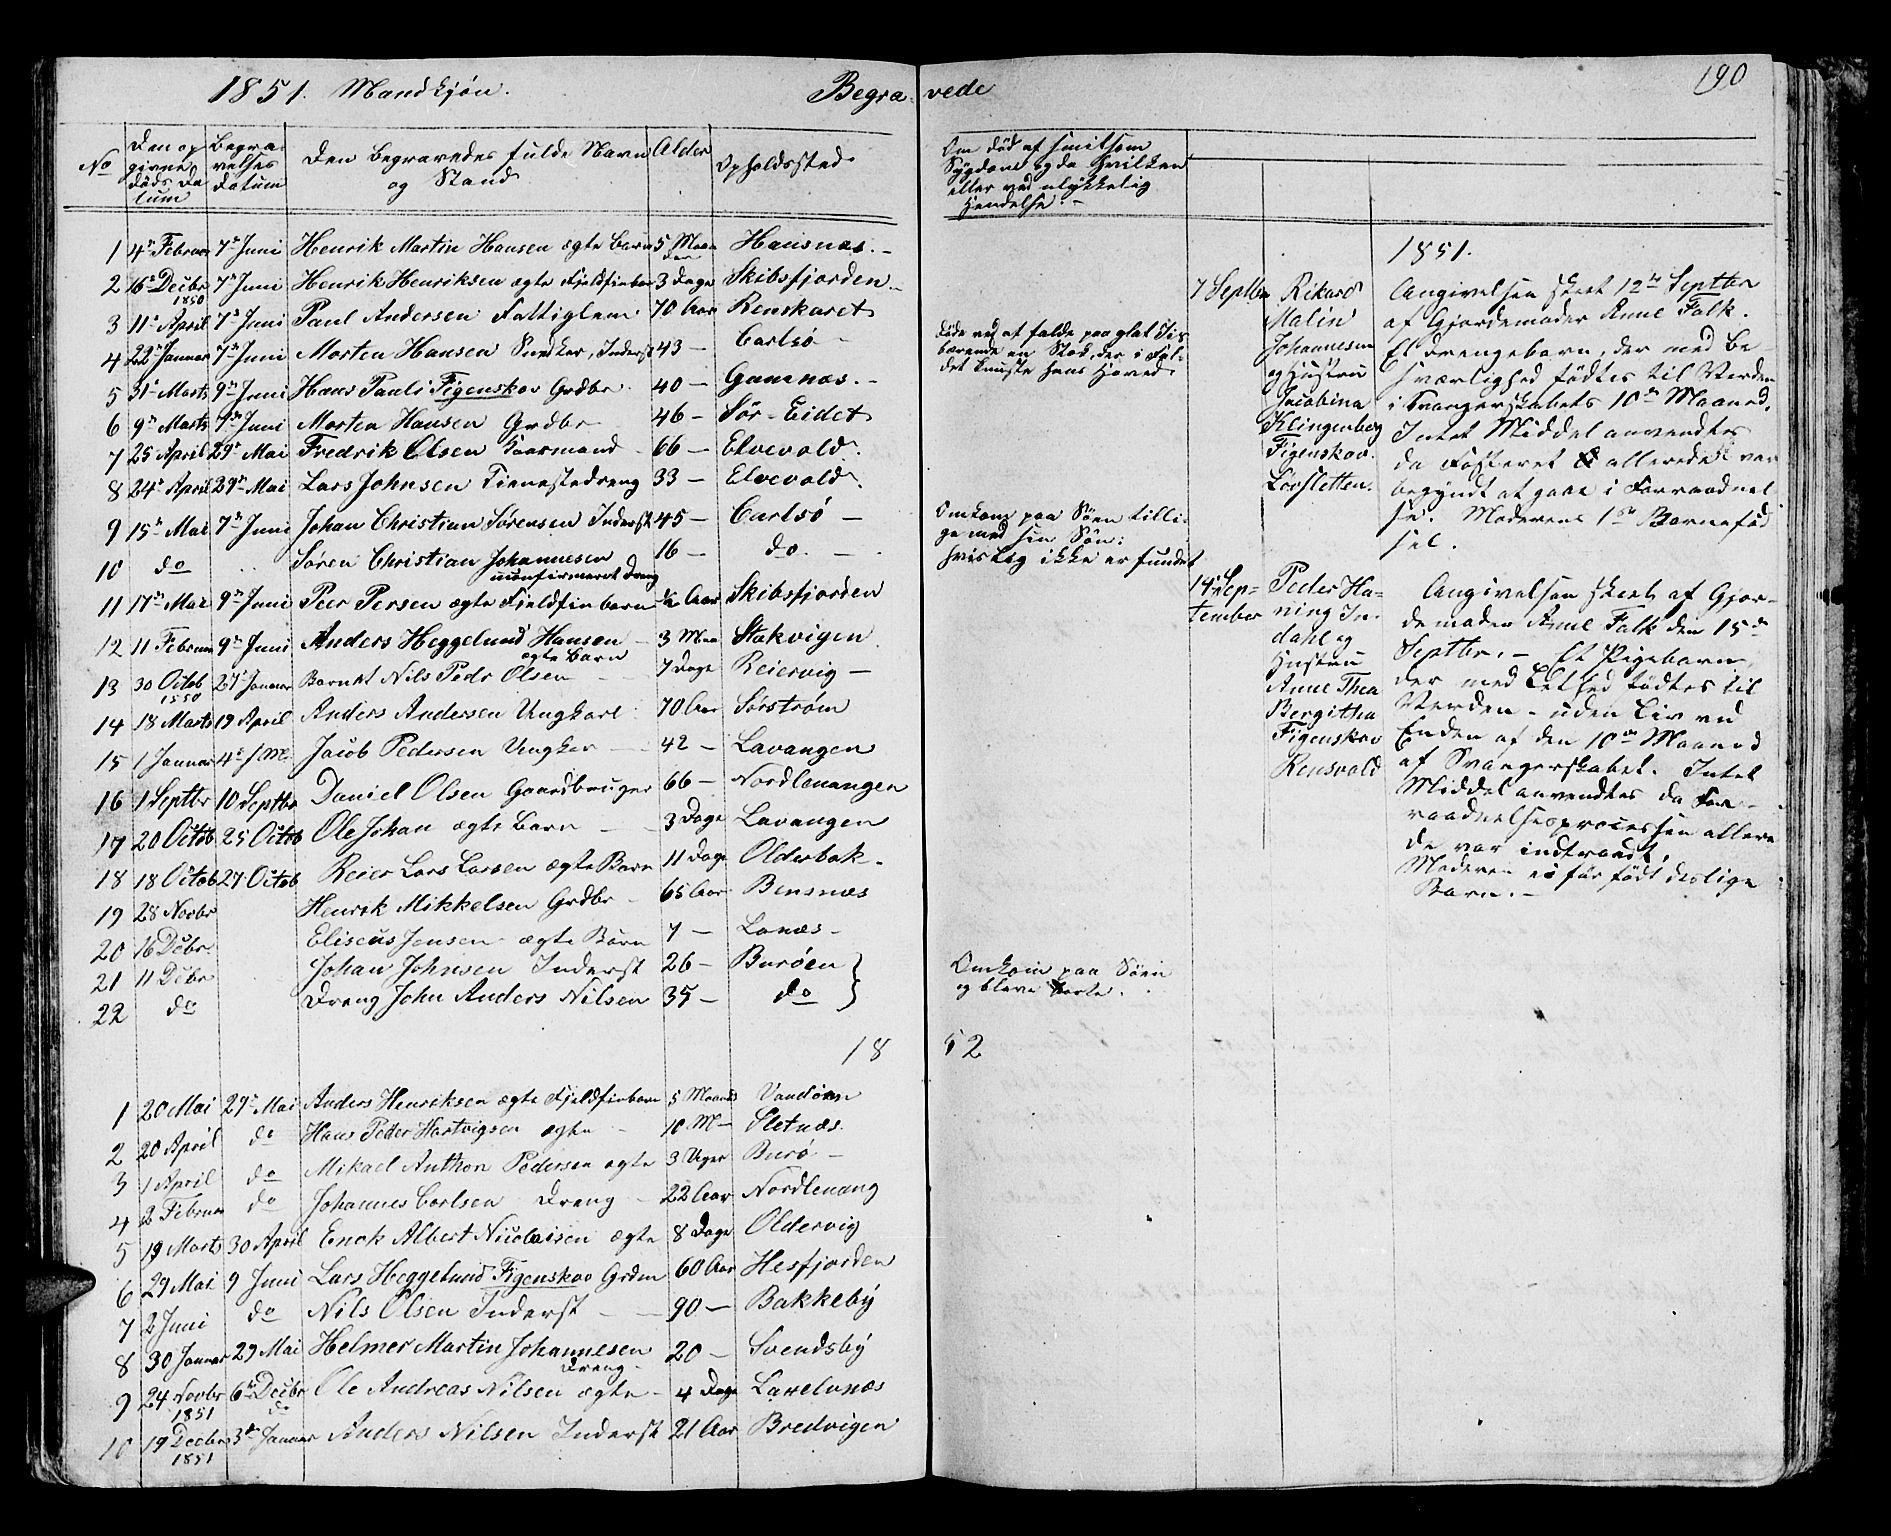 1851. Mandkjøn. Begravede 190
No
Den opgivne Døds Datum
Begravelses Datum
Den Begravedes fulde Navn og Stand
Alder
Opholdssted
Om død af smitsom
Sygdom og da hvilken
eller ved ulykkelig
Hendelse. -
1 4de Februar 7de Juni Henrik Martin Hansen ægte Barn 5 Maaneder Hansnæs. -
2 16de Decbr 1850 7de Juni Henrik Henriksen ægte Fjeldfinbarn 3 Dage Skibsfjorden -
3 11te April 7de Juni Paul Andersen Fattiglem 70 Aar Renskaret
4 22de Januar 7de Juni Morten Hansen Inderst 43 - Carlsø -
5 31te Marts 9de Juni Hans Pauli Figenskov Grdbr. 40 - Gamnæs. -
6 9de Marts 9de Juni Morten Hansen Grdbr 46 - Sør-Eidet
7 25 April 29de Mai Fredrik Olsen Kaarmand 66 - Elvevold.
8 24de April 29de Mai Lars Johnsen Tienestedreng 33 - Elvevold.
9 15de Mai 7de Juni Johan Christian Sørensen Inderst 45 - Carlsø -
10 do Søren Christian Johannesen 16 - do. -
uconfirmeret Dreng
11 17de Mai 9de Juni Peer Persen ægte Fjeldfinbarn ½ Aar Skibsfjorden
12 11 Februar 9de Juni Anders Heggelund Hansen 3 Maa Stakvigen
ægte Barn
13 30 Octob 1850 27de Januar Barnet Nils Pedr Olsen 7 Dage Reiervig -
14 18 Marts 19 April Anders Andersen Ungkarl 70 Aar Sørstrøm
15 1 Januar 4de Jacob Pedersen Ungkar 42 - Lavangen
16 1 Septbr 10 Septbr Daniel Olsen Gaardbruger 66 - Nordlenangen
17 20 Octob 25 Octob Ole Johan ægte Barn 3 Dage Lavangen
18 18 Octob 27 Octob Reier Lars Larsen ægte Barn 11 Dage Olderbak -
19 28 Novbr Henrik Mikkelsen Grdbr 65 Aar Bensnæs
20 16 Debr. Eliseus Jensen ægte Barn 7 - Lanæs -
21 11 Debr Johan Johnsen Inderst 26 - Burøen
22 do Dreng John Anders Nilsen 35 - do
1852
1 20 Mai 29de Mai Anders Henriksen ægte Fjeldfinbarn 5 Maaneds Vandøen
2 20 April do Hans Peder Hartvigsen ægte 10 M - Sletnæs.
3 1 April do Mikael Anthon Pedersen ægte 3 Uger Burø -
4 2 Februar do Johannes Carlsen Dreng 22 Aar Nordlenang
5 19 Marts 30 April Enok Albert Nicolaisen ægte 8 Dage Oldervig
6 29 Mai 9 Juni Lars Heggelund Figenskov Grdm 60 Aar Hesfjorden
7 2 Juni do Nils Olsen Inderst 90 - Bakkeby
8 30 Januar 29 Mai Helmer Martin Johannesen 20 - Svendsby
Dreng -
9 24 Novbr 1851 6te Decbr do Ole Andreas Nilsen ægte - 4 Dage Laxelvnæs
10 19 Decbr 1851 3de Januar Anders Nilsen Inderst 21 Aar Bredvigen
Døde ved at falde paa glat Iis
bærende en Stok, der i Fal-
det knuste hans Hoved
Omkom paa Søen tilli-
ge med sin Søn:
hvis Lig ikke er fundet
Omkom paa Søen
og bleve borte.
7 Septbr
Rikard
Malin
Johannesen
og Hustru
Jacobina
Klingenberg
Figenskov.
Lovsletten.
1851.
Angivelsen skeet 12te Septbr
af Gjordemoder Anne Falk.
Et Drengebarn, der med Be
sværlighed fødtes til Verden
i Svangerskabets 10de Maaned.
Intet Middel anvendtes
da Fosteret allerede var
begyndt at gaae i Forraadnel
se. Moderens 1ste Barnefød
sel.
14de Sep-
tember
Peder Ha-
ning In-
dahl og
Hustru
Anne Thea
Bergitha
Figenskov
Rensvold
Angivelsen skeet af Gjor-
demoder Anne Falk den 15de
Septbr. - Et Pigebarn,
der med Lethed fødtes til
Verden - uden Liv ved
Enden af den 10de Maaned
af Svangerskabet. Intet
Middel anvendtes da For-
raadnelsesprocessen allere
de var indtraadt.
Moderen ei før født deslige
Barn. -